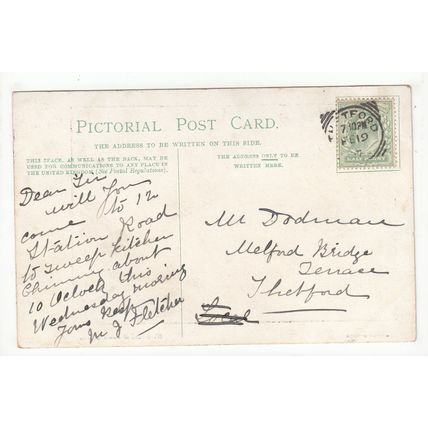 PICTORIAL POST CARD.
THE ADDRESS TO BE WRITTEN ON THIS SIDE.
THIS SPACE, AS WELL AS THE BACK, MAY BE
USED FOR COMMUNICATIONS TO ANY PLACE IN
THE UNITED KINGDOM (See Postal Regulations).
Dear Sir
will you
come to 12
Station Road
to sweep kitchen
Chimney about
10 oclock this
Wednesday morning
Yours Resp
M J Fletcher
THE ADDRESS ONLY TO BE
WRITTEN HERE.
THETFORD
7.30PM
FE 19
Mr Dodman
Melford Bridge
Terrace
Thetford